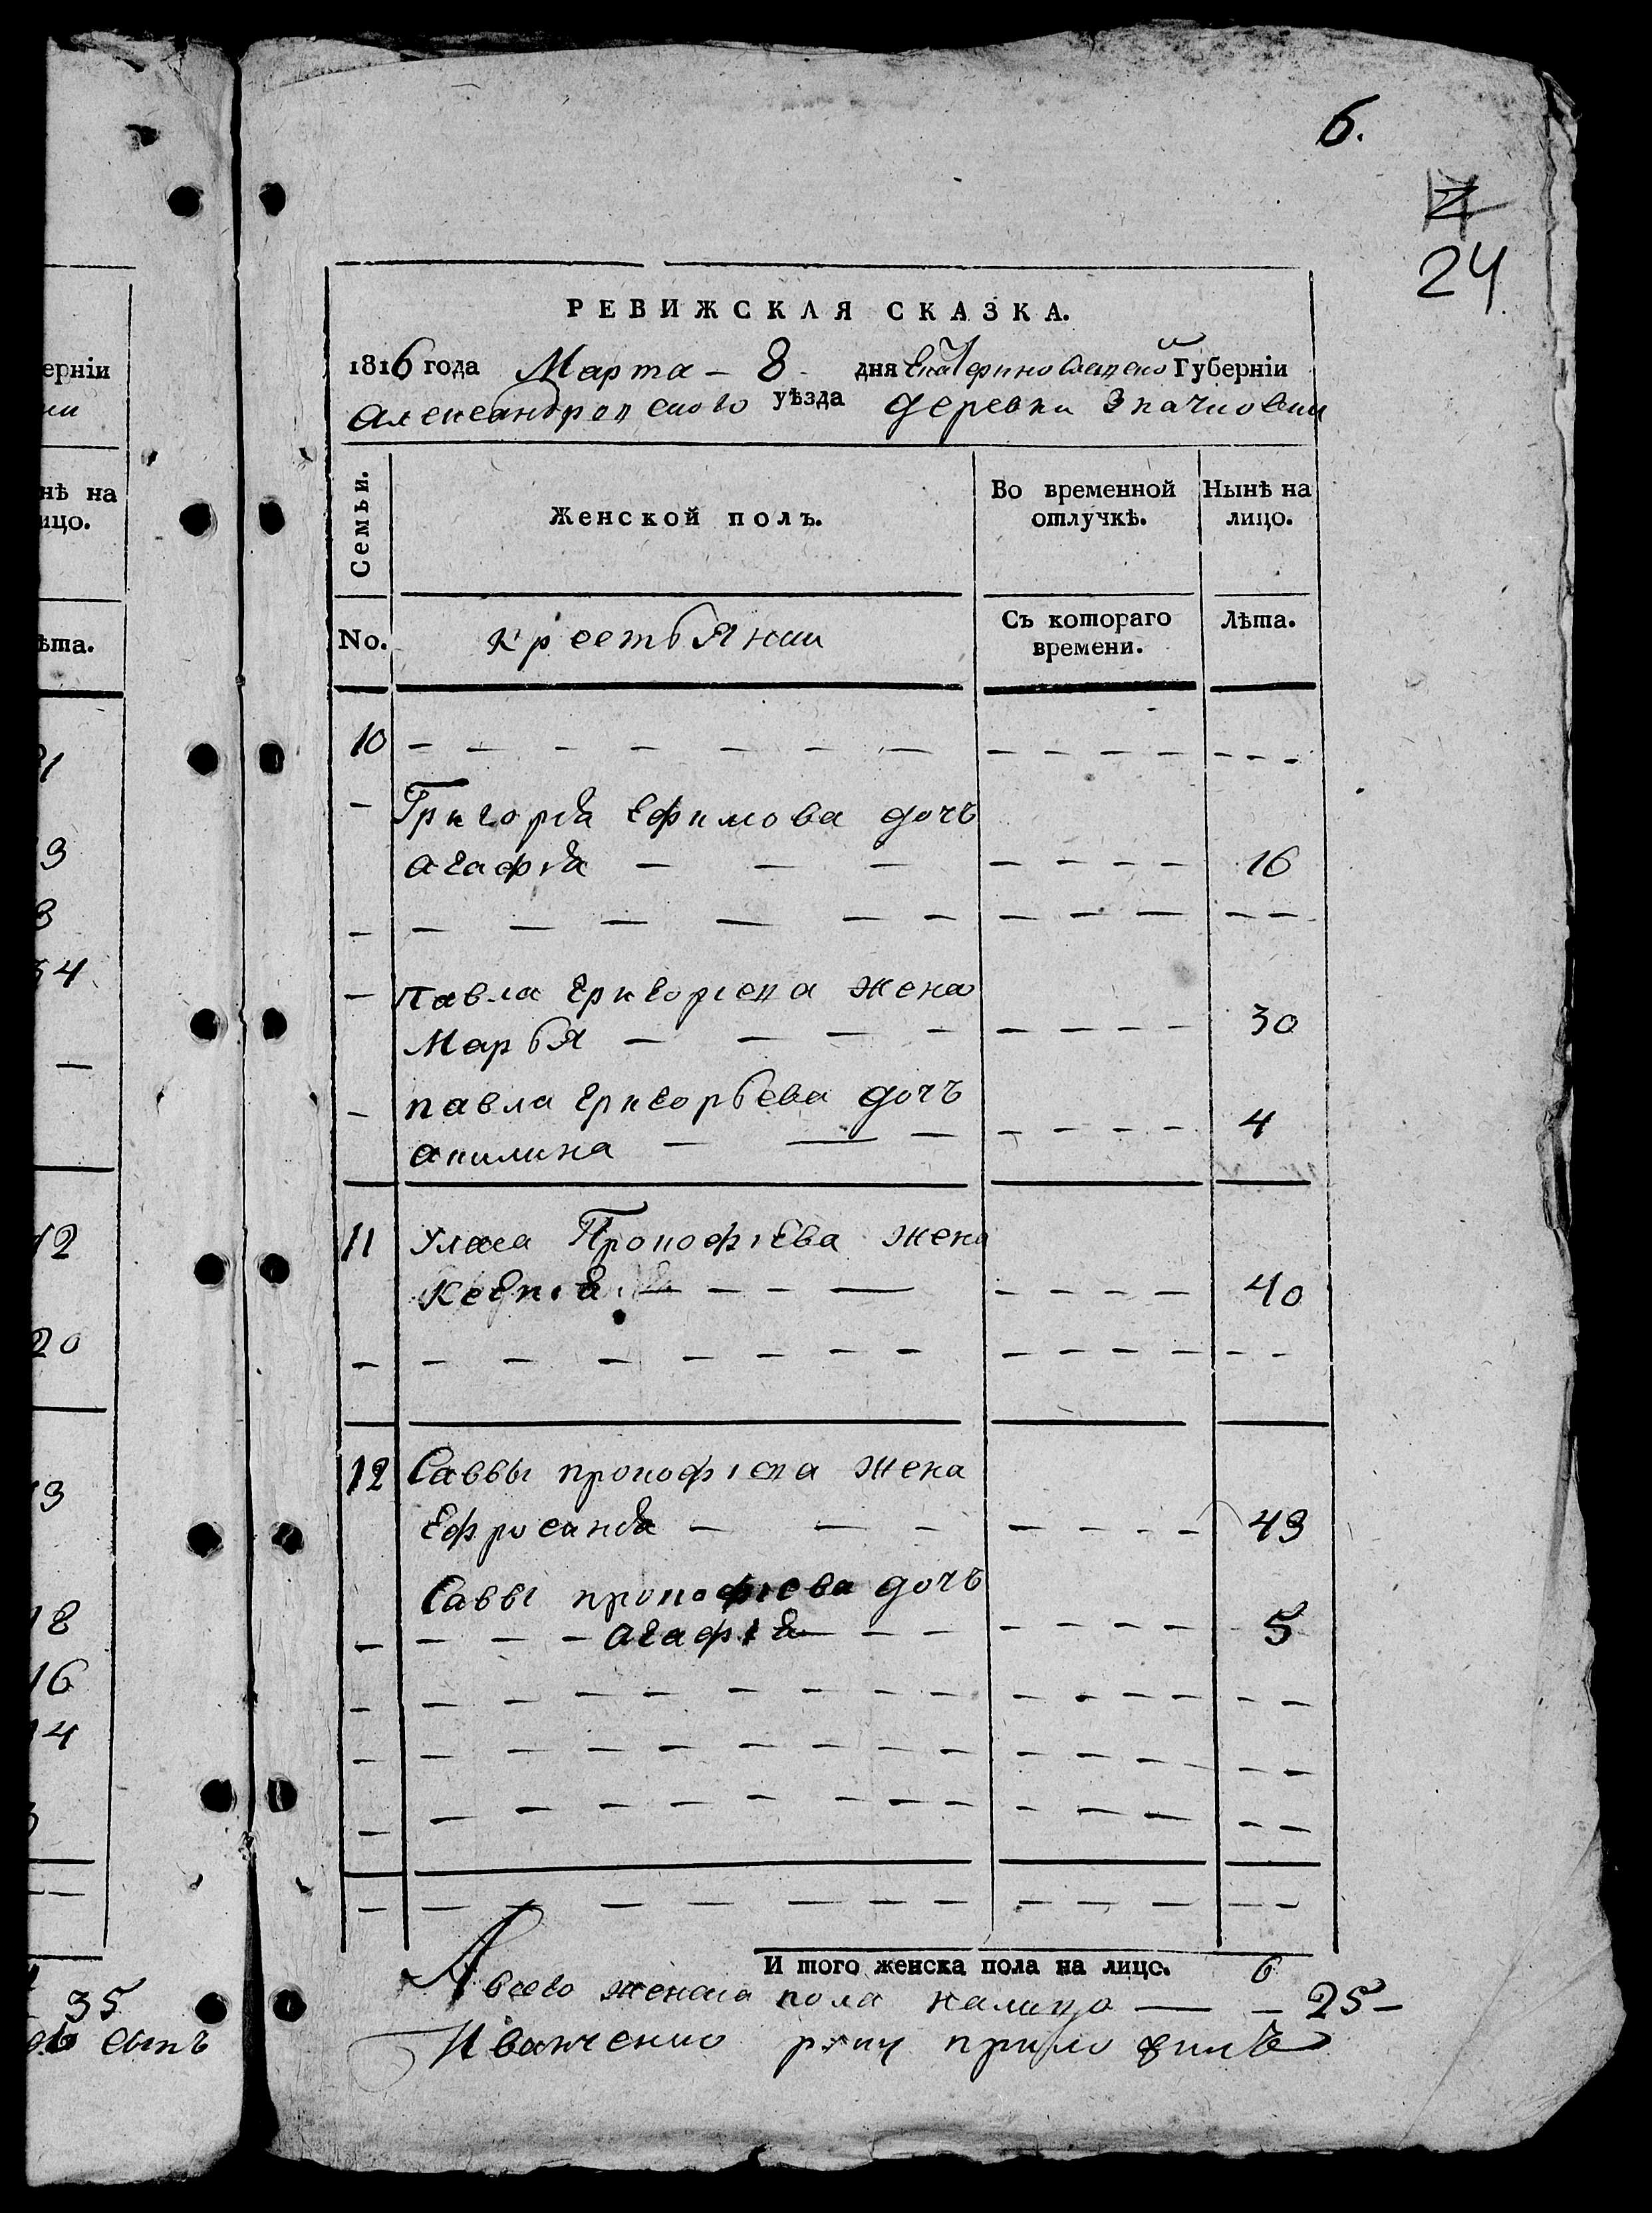 6.
24
РЕВИЖСКАЯ СКАЗКА.
1816 года Марта - 8 - дня Екатеринославской Губернїи
Александровского уѣзда деревни Значковки
Семьи.
Женской полъ.
Во временной отлучкѣ.
Нынѣ на лицо.
No.
крестьянки
Съ котораго времени.
Лѣта.
10
Григорїя Ефимова дочь
агафїя 16
павла григорїева жена
Марья 30
павла григорьева дочь
акилина 4
11 Уласа Прокофїева жена
Ксенїя 40
12 Саввы прокофїева жена
Ефросинїя 43
Саввы прокофїева дочь
агафїя 5
И того женска пола на лицо. 6
А всего женска пола налицо — 25 -
Иванченко руку приложилъ
ернїи
нѣ на
ицо.
ѣта.
3
34
12
20
13
18
16
14
35
сынъ